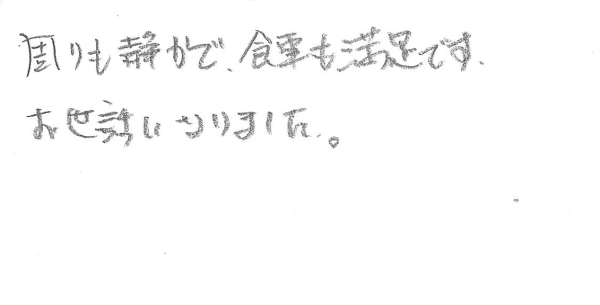 周りも静かで、食事も満足です。
お世話になりました。